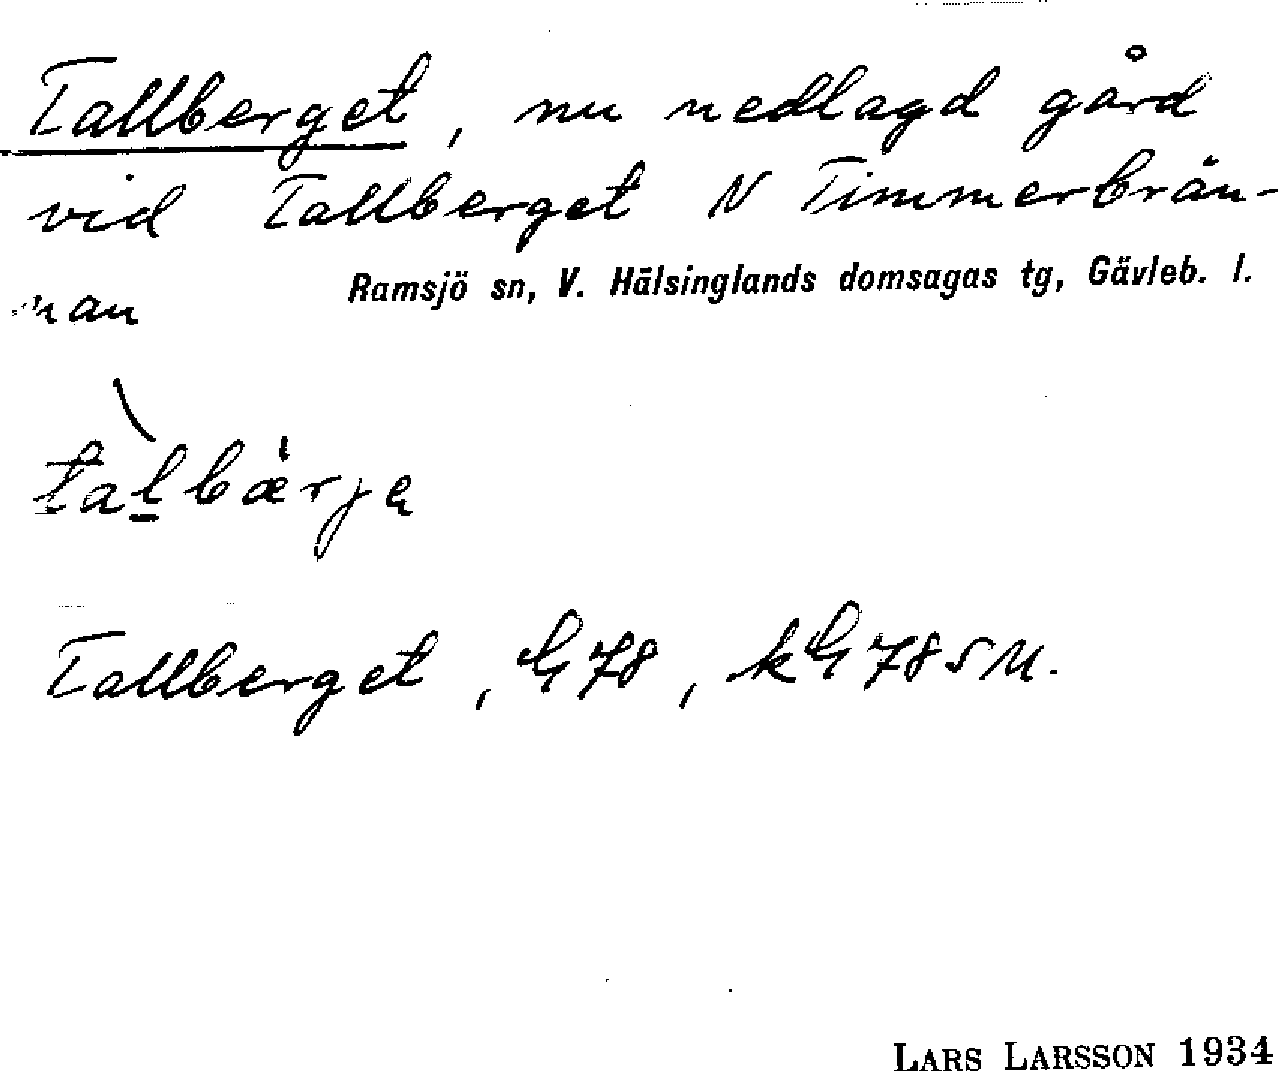 Tallberget, nu nedlagd gård
vid Tallberget N Timmerbrän-
nan
Ramsjö sn, V. Hälsinglands domsagas tg, Gävleb. l.
talbærje
Tallberget, G78, kG78SU.
LARS LARSSON 1934